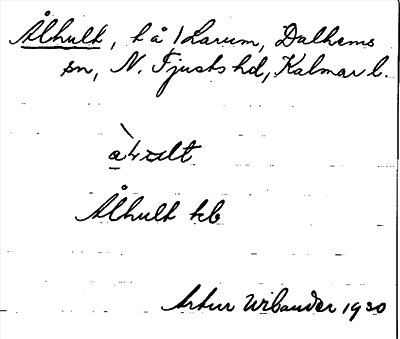 Ålhult, t å 1 Larum, Dalhems
sn, N. Tjusts hd, Kalmar l.
Ålhult kb
Artur Wilander 1930